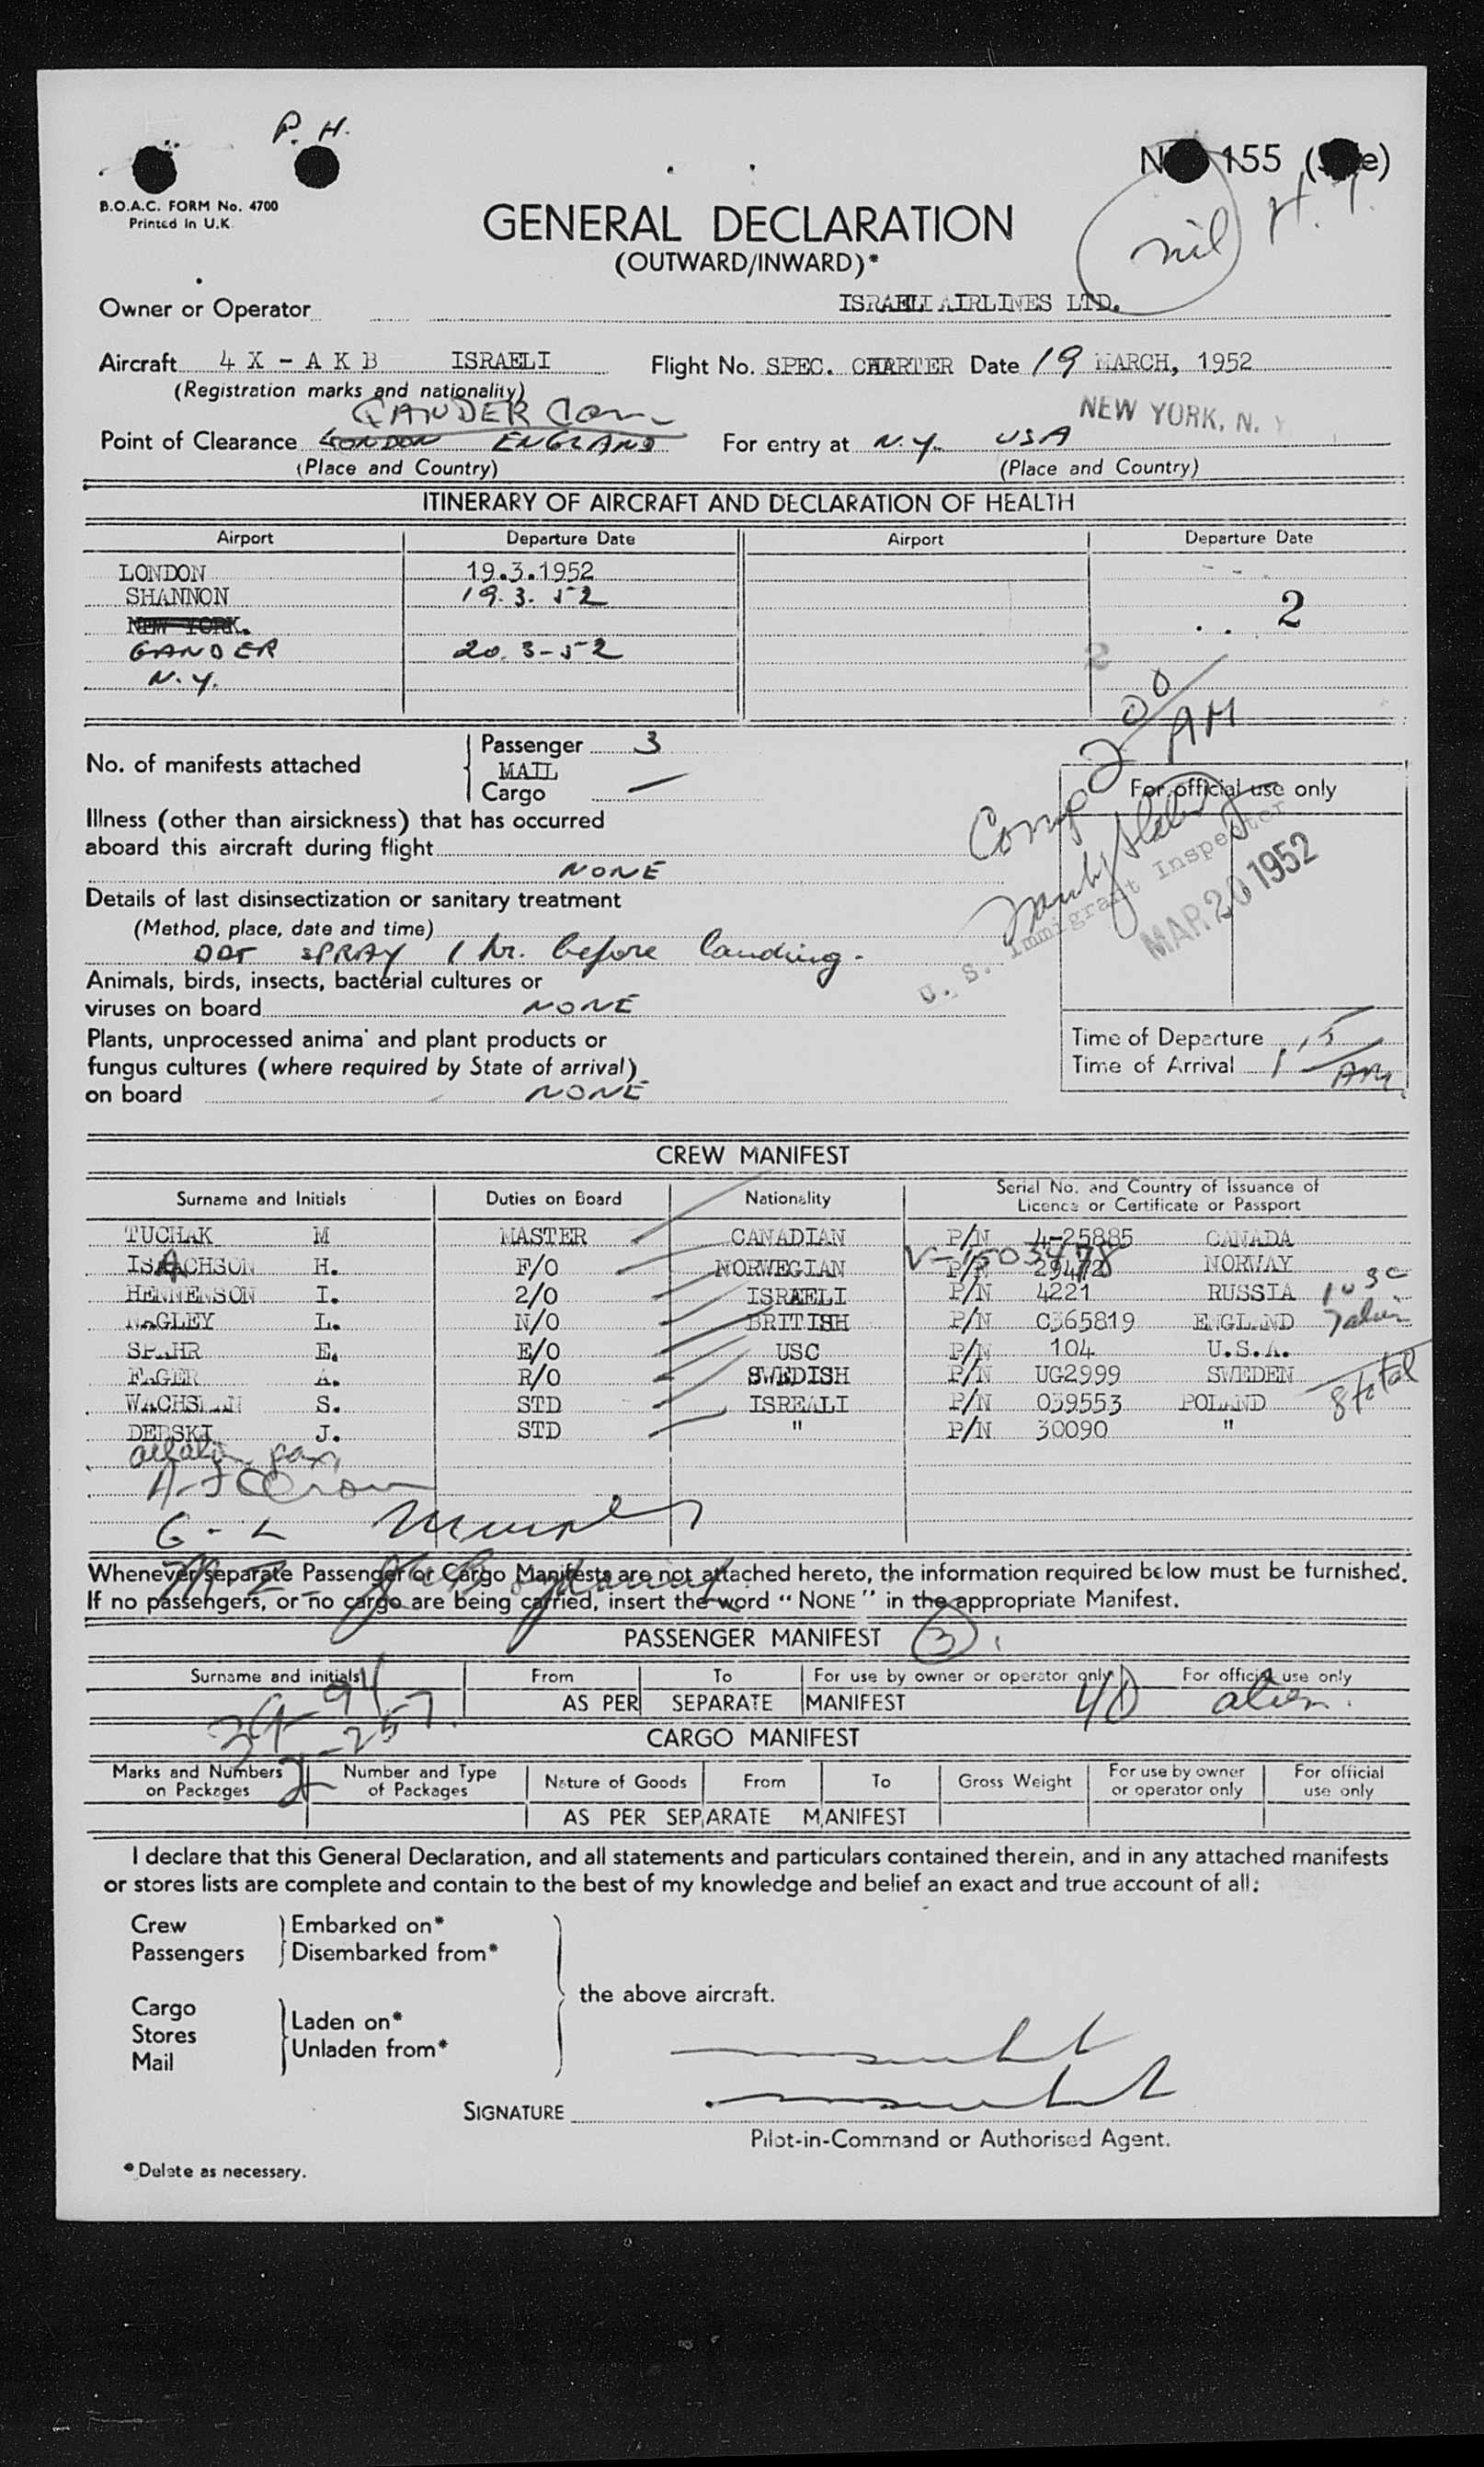 P. H.
155
B.O.A.C. FORM No. 4700
Printed in U.K.
GENERAL DECLARATION
(OUTWARD/INWARD)*
nil
Owner or Operator ISRAELI AIRLINES LTD.
Aircraft 4 X - A K B ISRAELI Flight No. SPEC. CHARTER Date 19 MARCH, 1952
(Registration marks and nationality)
GANDER Can NEW YORK, N. Y
Point of Clearance LONDON ENGLAND For entry at N.Y. USA
(Place and Country) (Place and Country)
ITINERARY OF AIRCRAFT AND DECLARATION OF HEALTH
Airport Departure Date Airport Departure Date
LONDON 19.3.1952
SHANNON 19.3.52 2
NEW YORK.
GANDER 20.3-52 2
N.Y.
No. of manifests attached
Passenger 3
MAIL
Cargo —
Comp 2 00 AM
For official use only
Illness (other than airsickness) that has occurred
aboard this aircraft during flight
NONE
U. S. Immigrant Inspector
MAR 20 1952
Details of last disinsectization or sanitary treatment
(Method, place, date and time)
DDT SPRAY 1 hr. before landing.
Animals, birds, insects, bacterial cultures or
viruses on board NONE
Plants, unprocessed animal and plant products or
fungus cultures (where required by State of arrival)
on board NONE
Time of Departure
Time of Arrival 1 15 AM
CREW MANIFEST
Surname and Initials Duties on Board Nationality Serial No. and Country of Issuance of
Licence or Certificate or Passport
TUCHAK M MASTER CANADIAN P/N 4-25885 CANADA
V-1503478
ISAACHSON H. F/O NORWEGIAN P/N 29472 NORWAY
HENNENSON I. 2/O ISRAELI P/N 4221 RUSSIA
NAGLEY L. N/O BRITISH P/N C365819 ENGLAND
SPAHR E. E/O USC P/N 104 U.S.A.
FAGER A. R/O SWEDISH P/N UG2999 SWEDEN
WACHSMAN S. STD ISREALI P/N 039553 POLAND
8 total
DEPSKI J. STD " P/N 30090 "
Whenever separate Passenger or Cargo Manifests are not attached hereto, the information required below must be furnished.
If no passengers, or no cargo are being carried, insert the word "NONE" in the appropriate Manifest.
PASSENGER MANIFEST 3
Surname and initials From To For use by owner or operator only For official use only
AS PER SEPARATE MANIFEST alien.
CARGO MANIFEST
Marks and Numbers on Packages Number and Type of Packages Nature of Goods From To Gross Weight For use by owner or operator only For official use only
AS PER SEPARATE MANIFEST
I declare that this General Declaration, and all statements and particulars contained therein, and in any attached manifests
or stores lists are complete and contain to the best of my knowledge and belief an exact and true account of all:
Crew
Passengers
Embarked on*
Disembarked from*
the above aircraft.
Cargo
Stores
Mail
Laden on*
Unladen from*
SIGNATURE
Pilot-in-Command or Authorised Agent.
* Delete as necessary.